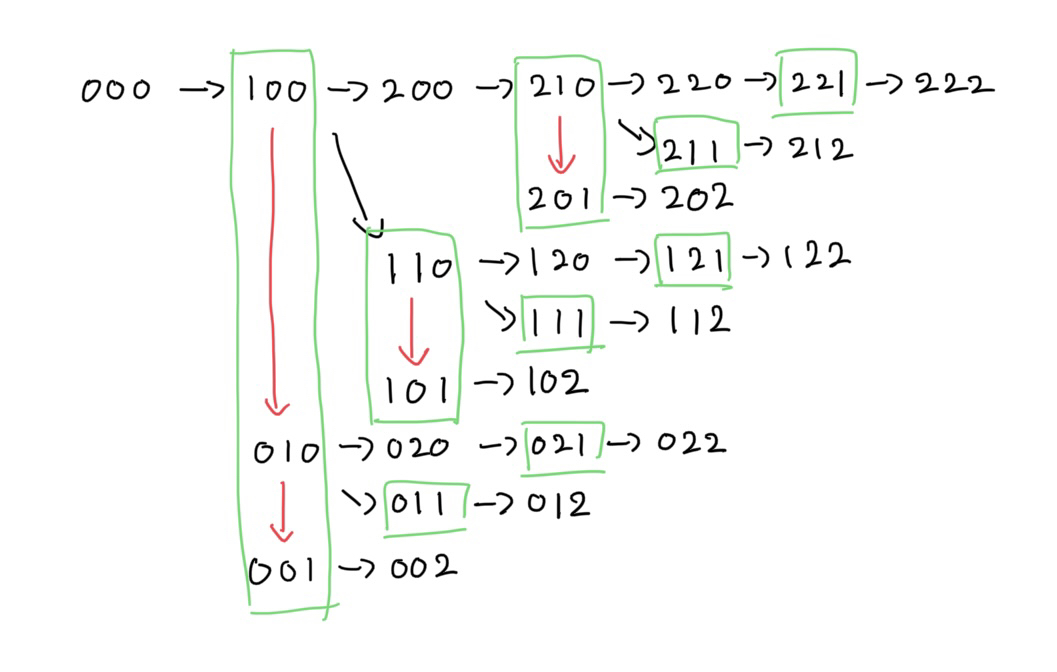 000 → 100 → 200 → 210 → 220 → 221 → 222
211 → 212
201 → 202
110 → 120 → 121 → 122
111 → 112
101 → 102
010 → 020 → 021 → 022
011 → 012
001 → 002